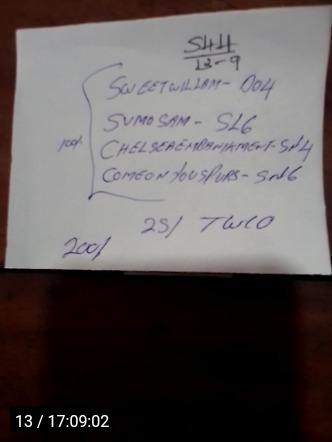 S44
12-9
SWEETWILLIAM - DO4
SUMOSAM - SL6
100/. CHELSEAEMBANKMENT - SN4
COMEONYOUSPURS - SN6
25/ TWCO
200/
13 / 17:09:02